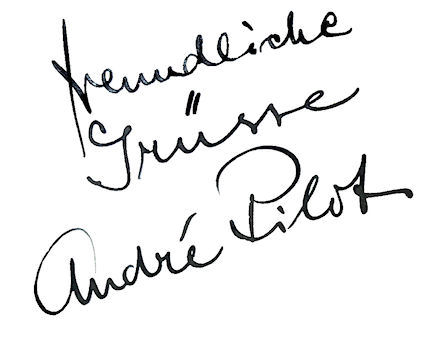 freundliche
Grüsse
André Pilot